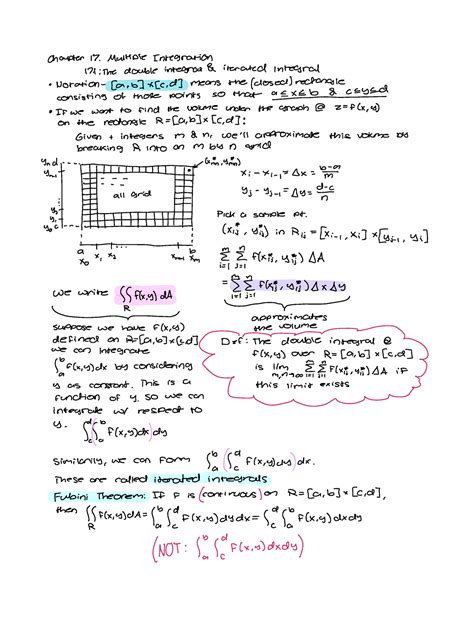 Chapter 17. Multiple Integration
17.1: The double integral & iterated integral
• Notation- [a,b]×[c,d] means the (closed) rectangle
consisting of those points so that a≤x≤b & c≤y≤d
• If we want to find the volume under the graph @ z=f(x,y)
on the rectangle R=[a,b]×[c,d]:
Given + integers m & n, we'll approximate this volume by
breaking R into an m by n grid
yn d
yn-1
y2
y1
y0 c
all grid
(x*mn, y*mn)
a
x0 x1 x2 xm-1 b
xm
xi - xi-1 = Δx = b-a/m
yj - yj-1 = Δy = d-c/n
Pick a sample pt.
(x*ij, y*ij) in Rij = [xi-1, xi] × [yj-1, yj]
m∑i=1 n∑j=1 f(x*ij, y*ij) ΔA
= m∑i=1 n∑j=1 f(x*ij, y*ij) Δx Δy
approximates
the volume
we write ∬R f(x,y) dA
suppose we have f(x,y)
defined on R=[a,b]×[c,d]
we can integrate
∫ab f(x,y)dx by considering
y as constant. This is a
function of y, so we can
integrate w/ respect to
y. ∫cd(∫ab f(x,y)dx)dy
Def: The double integral @
f(x,y) over R=[a,b]×[c,d]
is lim m,n→∞ m∑i=1 n∑j=1 f(x*ij, y*ij) ΔA if
this limit exists
Similarly, we can form ∫ab(∫cd f(x,y)dy)dx.
These are called iterated integrals
Fubini Theorem: If f is (continuous) on R=[a,b]×[c,d],
then ∬R f(x,y)dA = ∫ab∫cd f(x,y)dydx = ∫cd∫ab f(x,y)dxdy
(NOT: ∫ab∫cd f(x,y)dxdy)